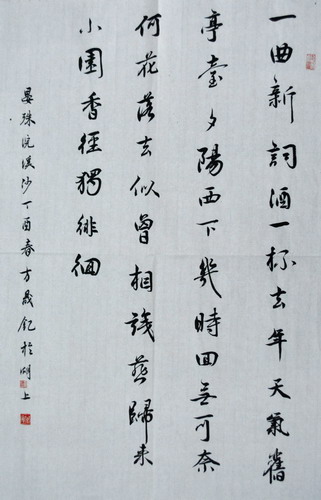 一曲新詞酒一杯去年天氣舊
亭臺夕陽西下幾時回無可奈
何花落去似曾相識燕歸来
小園香徑獨徘徊
晏殊浣溪沙丁酉春方成釲於湖上